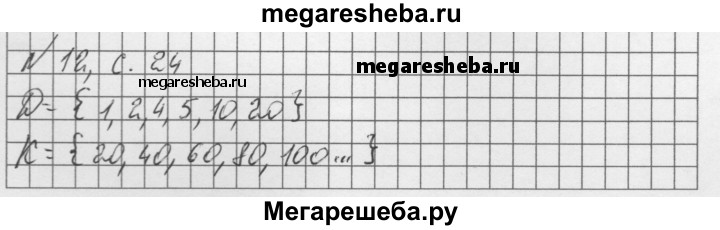 megaresheba.ru
N 12, с. 24
megaresheba.ru
megaresheba.ru
D = { 1, 2, 4, 5, 10, 20 }
K = { 20, 40, 60, 80, 100... }
Мегарешеба.ру